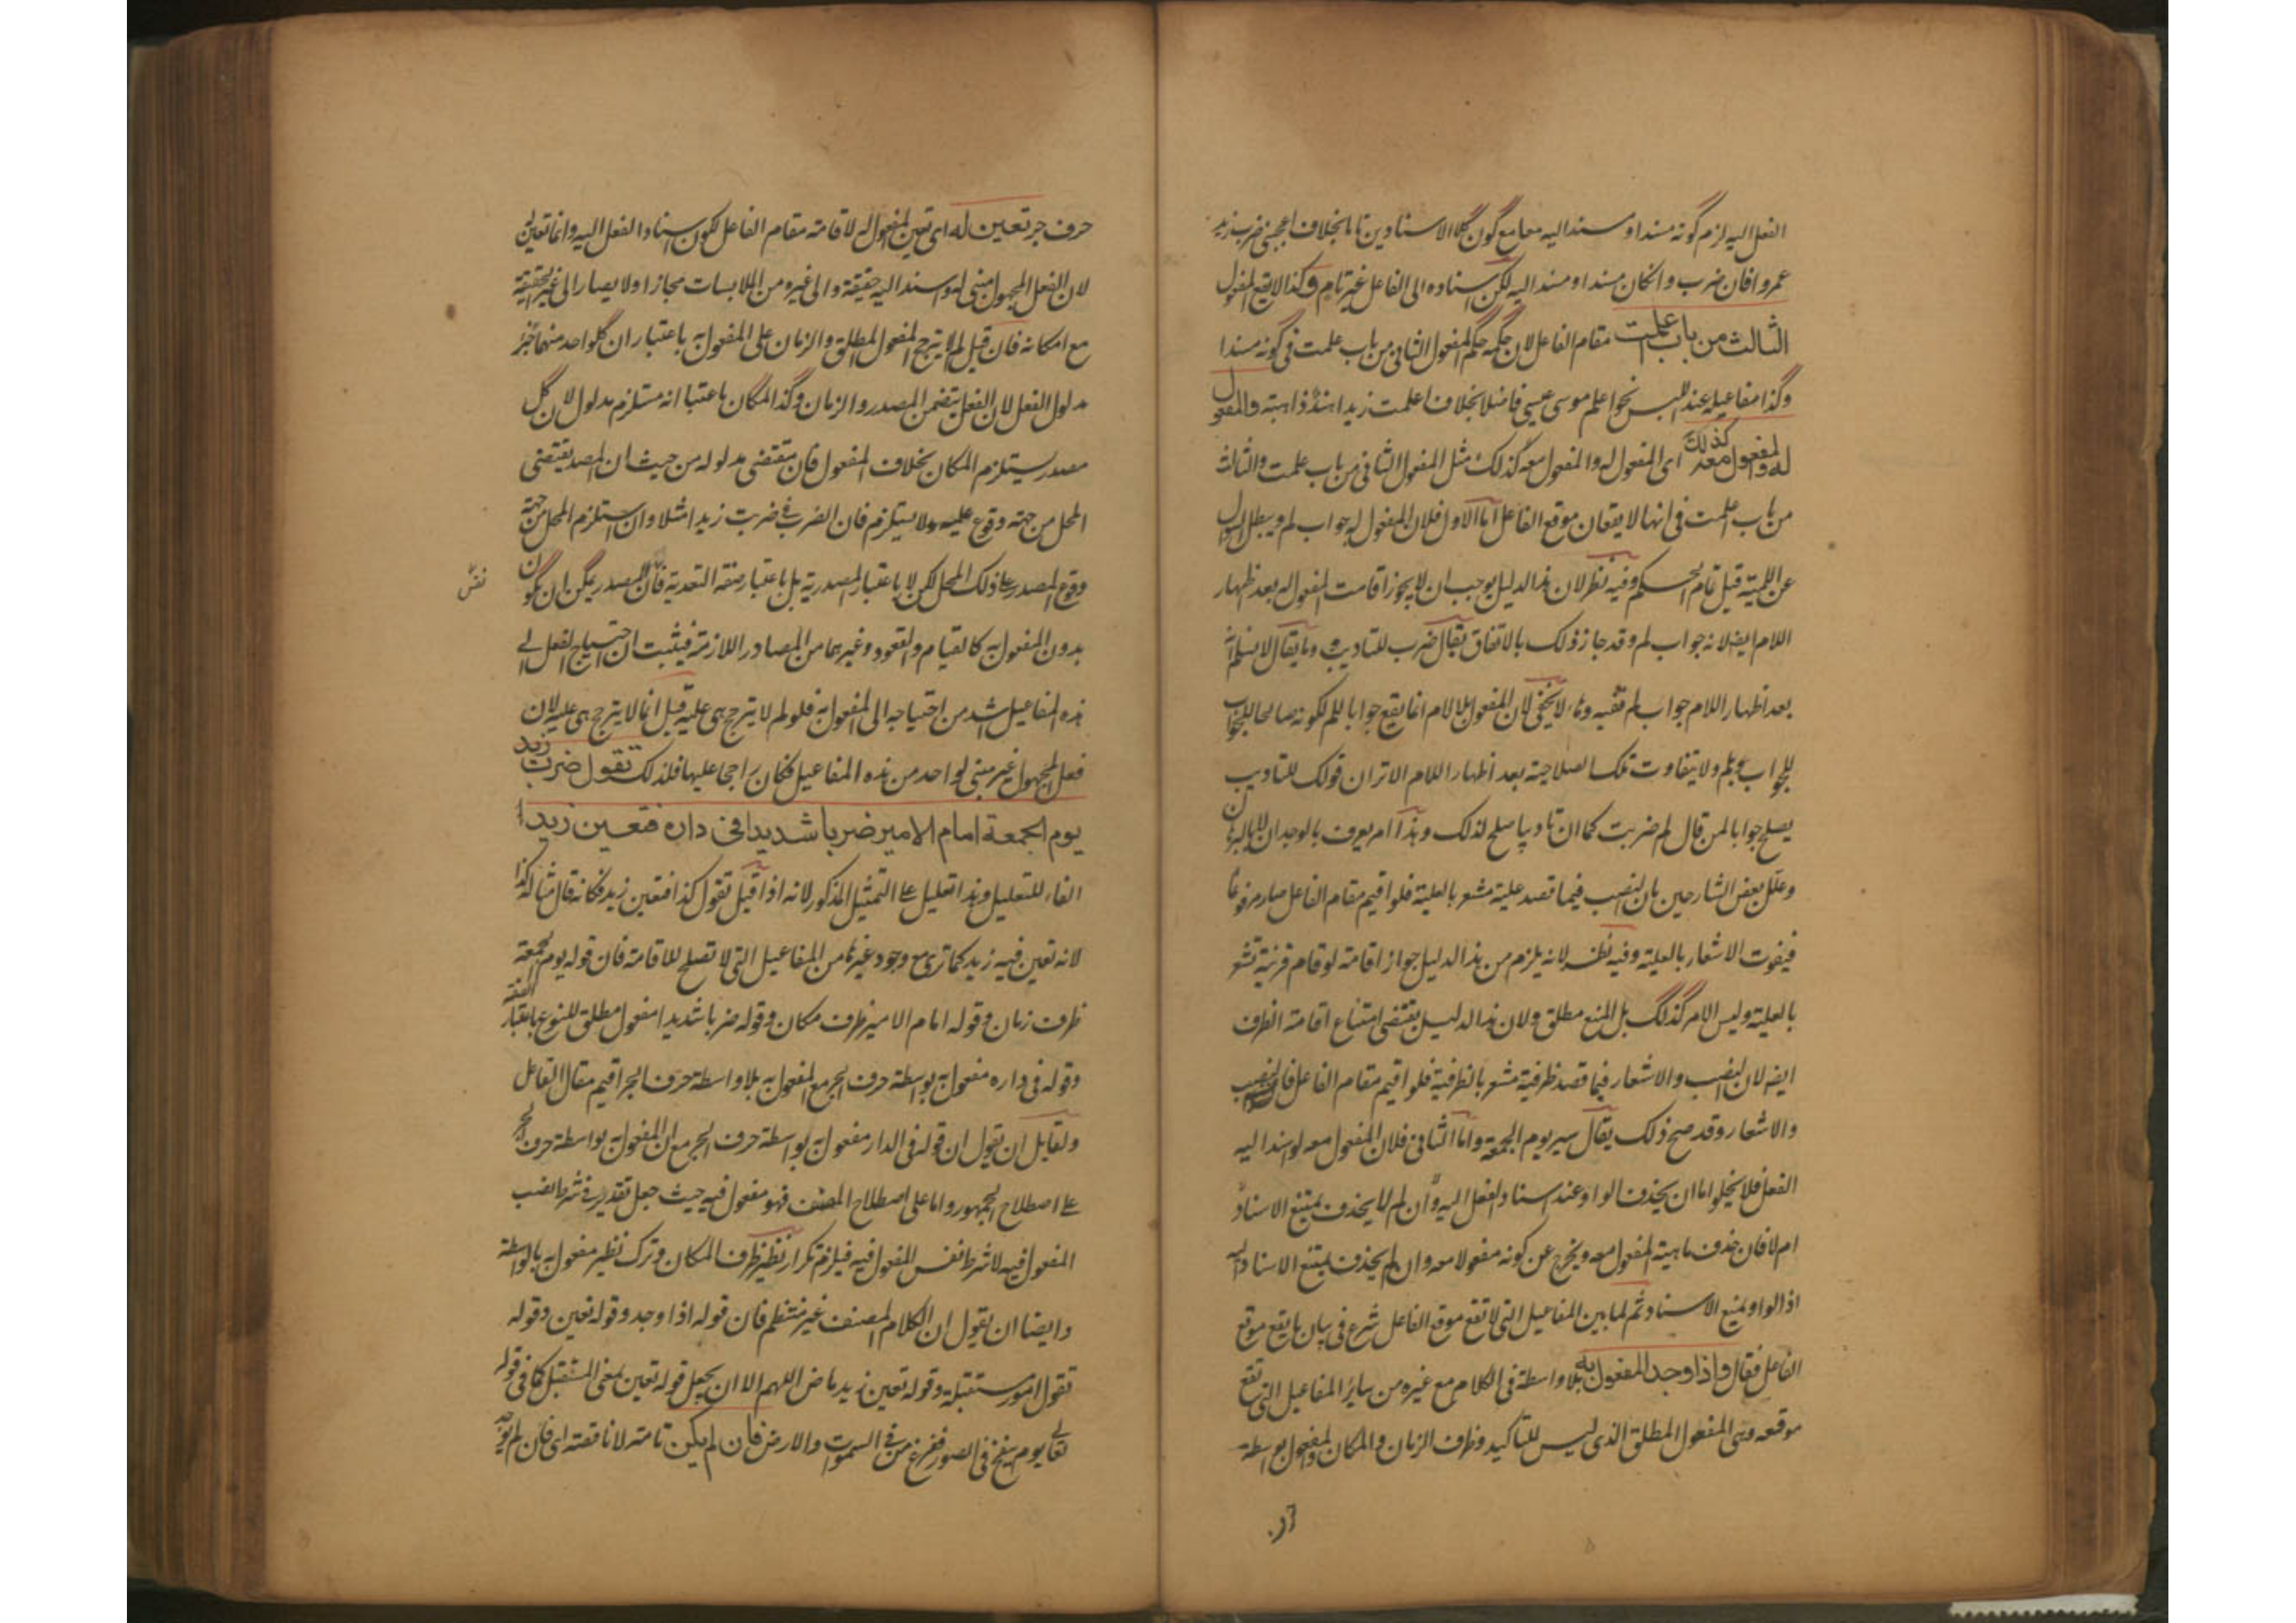 الفعل اليه لزم كونه مسندا ومسندا اليه معا مع كون كلا الاسنادين تاما بخلاف اعجبنى ضرب زيد
عمروا فان ضرب وانكان مسندا ومسندا اليه لكن اسناده الى الفاعل غير تام وكذا لا يقع المفعول
الثالث من باب اعلمت مقام الفاعل لان حكمه حكم المفعول الثانى من باب علمت فى كونه مسندا
وكذا مفاعيله عند اللبس نحو اعلم موسى عيسى فاضلا بخلاف اعلمت زيدا هندا ذاهبة والمفعول
له والمفعول معه كذلك اى المفعول له والمفعول معه كذلك مثل المفعول الثانى من باب علمت والثالث
من باب اعلمت فى انها لا يقعان موقع الفاعل اما الاول فلان المفعول له جواب لم ويبطل السوال
عن اللمية قبل تمام الحكم وفيه نظر لان هذا الدليل يوجب ان لا يجوز اقامت المفعول له بعد اظهار
اللام ايضا لانه جواب لم وقد جاز ذلك بالاتفاق يقال ضرب للتاديب وما يقال لا نسلم انه
بعد اظهار اللام جواب لم لا يخفى لان المفعول له باللام انما يقع جوابا للم لكونه صالحا للجواب
للجواب بلم ولا يتفاوت تلك الصلاحية بعد اظهار اللام الا تران قولك للتاديب
يصلح جوابا لمن قال لم ضربت كما ان تاديبا صلح لذلك وهذا امر يعرف بالوجدان
وعلل بعض الشارحين بان النصب فيما قصد علية مشعر بالعلية فلو اقيم مقام الفاعل صار مرفوعا
فيفوت الاشعار بالعلية وفيه نظر لانه يلزم من هذا الدليل جواز اقامة لو قام قرينة تشعر
بالعلية وليس الامر كذلك بل المنع مطلق ولان هذا الدليل يقتضى امتناع اقامة الظرف
ايضا لان النصب والاشعار فيما قصد ظرفية مشعر بالظرفية فلو اقيم مقام الفاعل فات النصب
والاشعار وقد صح ذلك يقال سير يوم الجمعة واما الثانى فلان المفعول معه لو اسند اليه
الفعل فلا يخلو اما ان يحذف الواو عند اسناد الفعل اليه وان لم يحذف يمتنع الاسناد
ام لا فان حذف ماهية المفعول معه ويخرج عن كونه مفعولا معه وان لم يحذف يمتنع الاسناد اليه
اذ الواو يمنع الاسناد ثم لما بين المفاعيل التى لا تقع موقع الفاعل شرع فى بيان ما يقع موقع
الفاعل فقال واذا وجد المفعول به بلا واسطة فى الكلام مع غيره من ساير المفاعيل التى تقع
موقعه وهى المفعول المطلق الذى ليس للتاكيد وظرف الزمان والمكان والمفعول بواسطة
حرف
حرف جر تعين له اى تعين المفعول له لاقامة مقام الفاعل لكون اسناد الفعل اليه وانما تعين
لان الفعل المجهول مبنى له واسند اليه حقيقة والى غيره من الملابسات مجازا ولا يصار الى غير الحقيقة
مع امكانه فان قيل لم لا يترجح المفعول المطلق والزمان على المفعول به باعتبار ان كلواحد منهما جزء
مدلول الفعل لان الفعل يتضمن المصدر والزمان وكذا المكان باعتبا انه مستلزم مدلول لان كل
مصدر يستلزم المكان بخلاف المفعول فان مقتضى مدلوله من حيث ان المصدر يقتضى
المحل من جهة وقوع عليه ولا يستلزم فان الضرب فى ضربت زيدا مثلا وان استلزم المحل من جهة
وقوع المصدر على ذلك المحل لكن لا باعتبار المصدرية بل باعتبار صفة التعدية فان المصدر يمكن ان يكون
بدون المفعول به كالقيام والقعود وغيرهما من المصادر اللازمة فيثبت ان احتياج الفعل الى
هذه المفاعيل اشد من احتياجه الى المفعول به فلو لم لا يترجح هى عليه قيل انما لا يترجح هى عليه لان
فعل المجهول غير مبنى لواحد من هذه المفاعيل فكان راجحا عليها فلذلك تقول ضرب زيد
يوم الجمعة امام الامير ضربا شديدا فى داره فتعين زيد
الفاء للتعليل وهذا تعليل على التمثيل المذكور لانه اذا قيل تقول كذا فتعين زيد فكانه قال مثاله كذا
لانه تعين فيه زيد كما ترى مع وجود غيره من المفاعيل التى لا تصلح للاقامة فان قوله يوم الجمعة
ظرف زمان وقوله امام الامير ظرف مكان وقوله ضربا شديدا مفعول مطلق للنوع باعتبار الصفة
وقوله فى داره مفعول به بواسطة حرف الجر مع المفعول به بلا واسطة حرف الجر اقيم مقام الفاعل
ولقايل ان يقول ان قوله فى الدار مفعول به بواسطة حرف الجر مع ان المفعول به بواسطة حرف الجر
على اصطلاح الجمهور واما على اصطلاح المصنف فهو مفعول فيه حيث جعل تقدير فى شرط نصب
المفعول فيه لا شرط نفس المفعول فيه فيلزم تكرار نظير ظرف المكان وترك نظير مفعول به بالواسطة
وايضا ان يقول ان الكلام المصنف غير منتظم فان قوله اذا وجد وقوله تعين وقوله
تقول امور مستقبلة وقوله تعين زيد ماض اللهم الا ان يجعل قوله تعين بمعنى المستقبل كما فى قوله
تعالى يوم ينفخ فى الصور ففزع من فى السموات والارض فان لم يكن تامة لا ناقصة اى فان لم يوجد